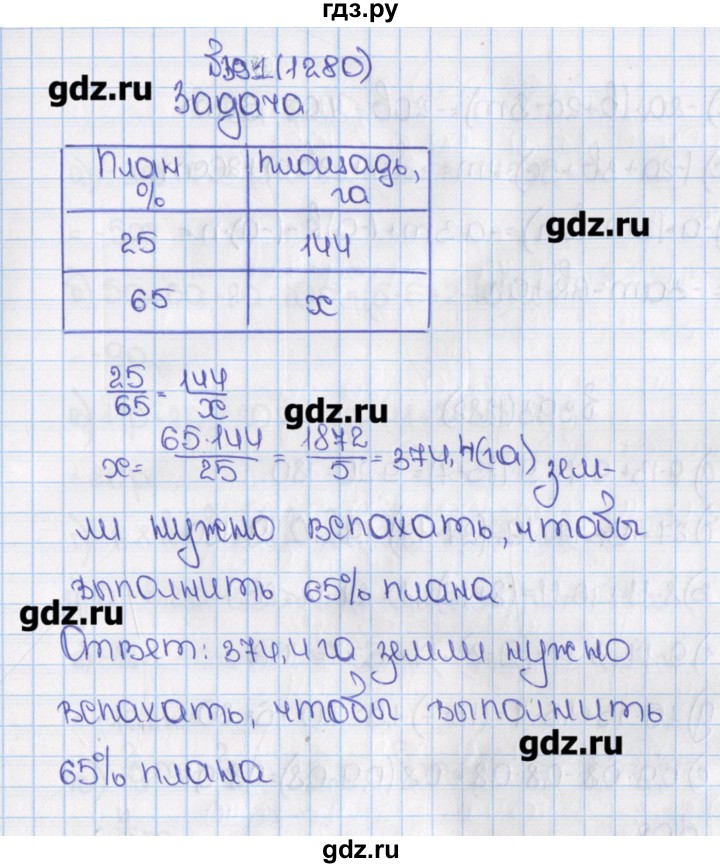 гдз.ру
(1280)
gdz.ru
Задача
План % | площадь, га
gdz.ru
25 | 144
65 | x
25/65 = 144/x
gdz.ru
x = 65·144/25 = 1872/5 = 374,4(га) зем-
ли нужно вспахать, чтобы
выполнить 65% плана
gdz.ru
Ответ: 374,4 га земли нужно
вспахать, чтобы выполнить
gdz.ru
65% плана
gdz.ru